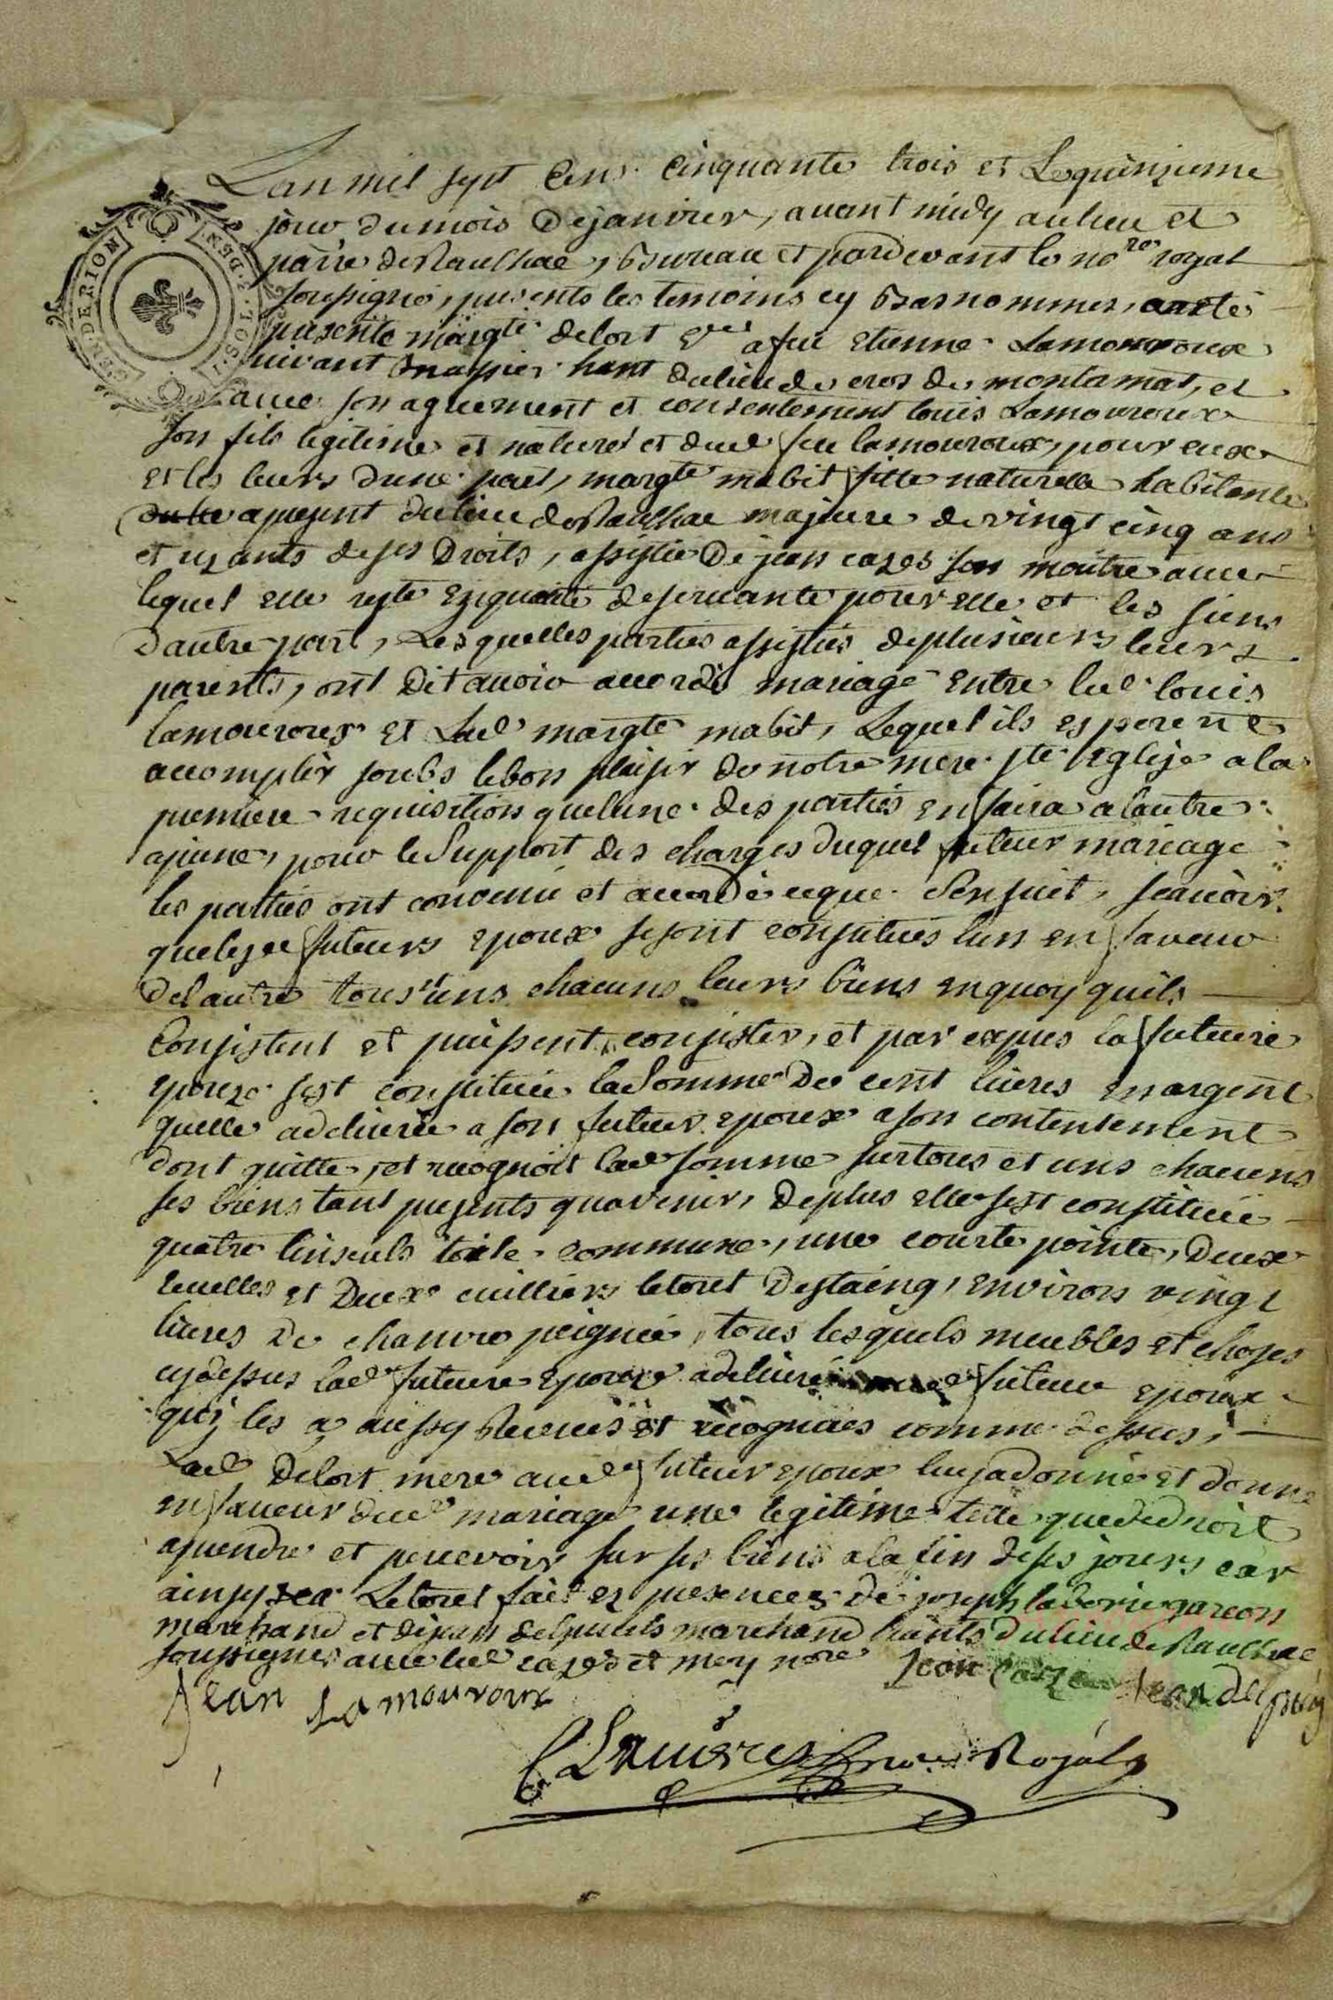 GEN·DE·RION
1 SOL·2·DEN
Lan mil sept cens cinquante trois et le quinzieme
jour du mois de janvier, avant midy au lieu et
parre de Raulhac, bureau et pardevant le no.re royal
soussigné, presents les temoins cy bas nommes, a esté
presente margte delort veve a feu etienne Lamouroux
vivant hant du lieu du cros de montamat, et
avec son agreement et consentement louis Lamouroux
son fils legitime et naturel et dud feu lamouroux, pour eux
et les leurs dune part, margte mabit fille naturelle habitante
apresent du lieu de Raulhac majeure de vingt cinq ans
et uzante de ses Droits, assistée De jean cazes son maitre avec
lequel elle reste en qualité de servante pour elle et les siens
Dautre part, Lesquelles parties assistées de plusieurs leurs
parents, ont Dit avoir accordé mariage entre led louis
lamouroux et Lad margte mabit, Lequel ils esperent
accomplir soubs le bon plaisir de notre mere ste Eglize a la
premiere requisition que lune des parties en faira a lautre
a peine, pour le Support des charges duquel futeur mariage
les parties ont convenu et accordé ce que Sensuit, scavoir
que lesd futeurs epoux se sont constitués lun en faveur
de lautre tous uns chacuns leurs biens en quoy quils
Consistent et puissent consister, et par expres la futeure
epouze sest constituée la Somme De cent livres en argent
quelle a delivrée a son futeur epoux a son contentement
dont quitte, et recognoit lad somme sur tous et uns chacuns
ses biens tant presents qu avenir, De plus elle sest constituée
quatre linseuls toile commune, une courte pointe, Deux
ecuelles et Deux cuilliers letout Destaing, environ vingt
livres De chanvre peignée, tous lesquels meubles et choses
cy dessus lad futeure epouze a delivré futeur epoux
qui les a aussy Recues et recognues comme dessus,
Lad Delort mere aud futeur epoux luy a donné et donne
en faveur dud mariage une legitime telle que de droit
a prendre et percevoir sur ses biens a la fin de ses jours car
ainsy Letout fait ez presences de joseph laborie garcon
marchand et de jean delpuets marchand hants Du lieu de Raulhac
soussignes avec led cazes et moy nore Jean Cazes Jean Delpuech
Jean Lamouroux
nore Royal